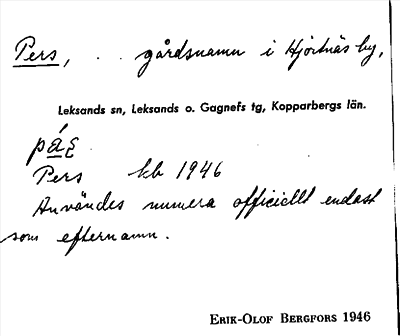 Pers, . . gårdsnamn i Hjortnäs by,
Leksands sn, Leksands o. Gagnefs tg, Kopparbergs län.
Pers kb 1946
Användes numera officiellt endast
som efternamn.
ERIK-OLOF BERGFORS 1946